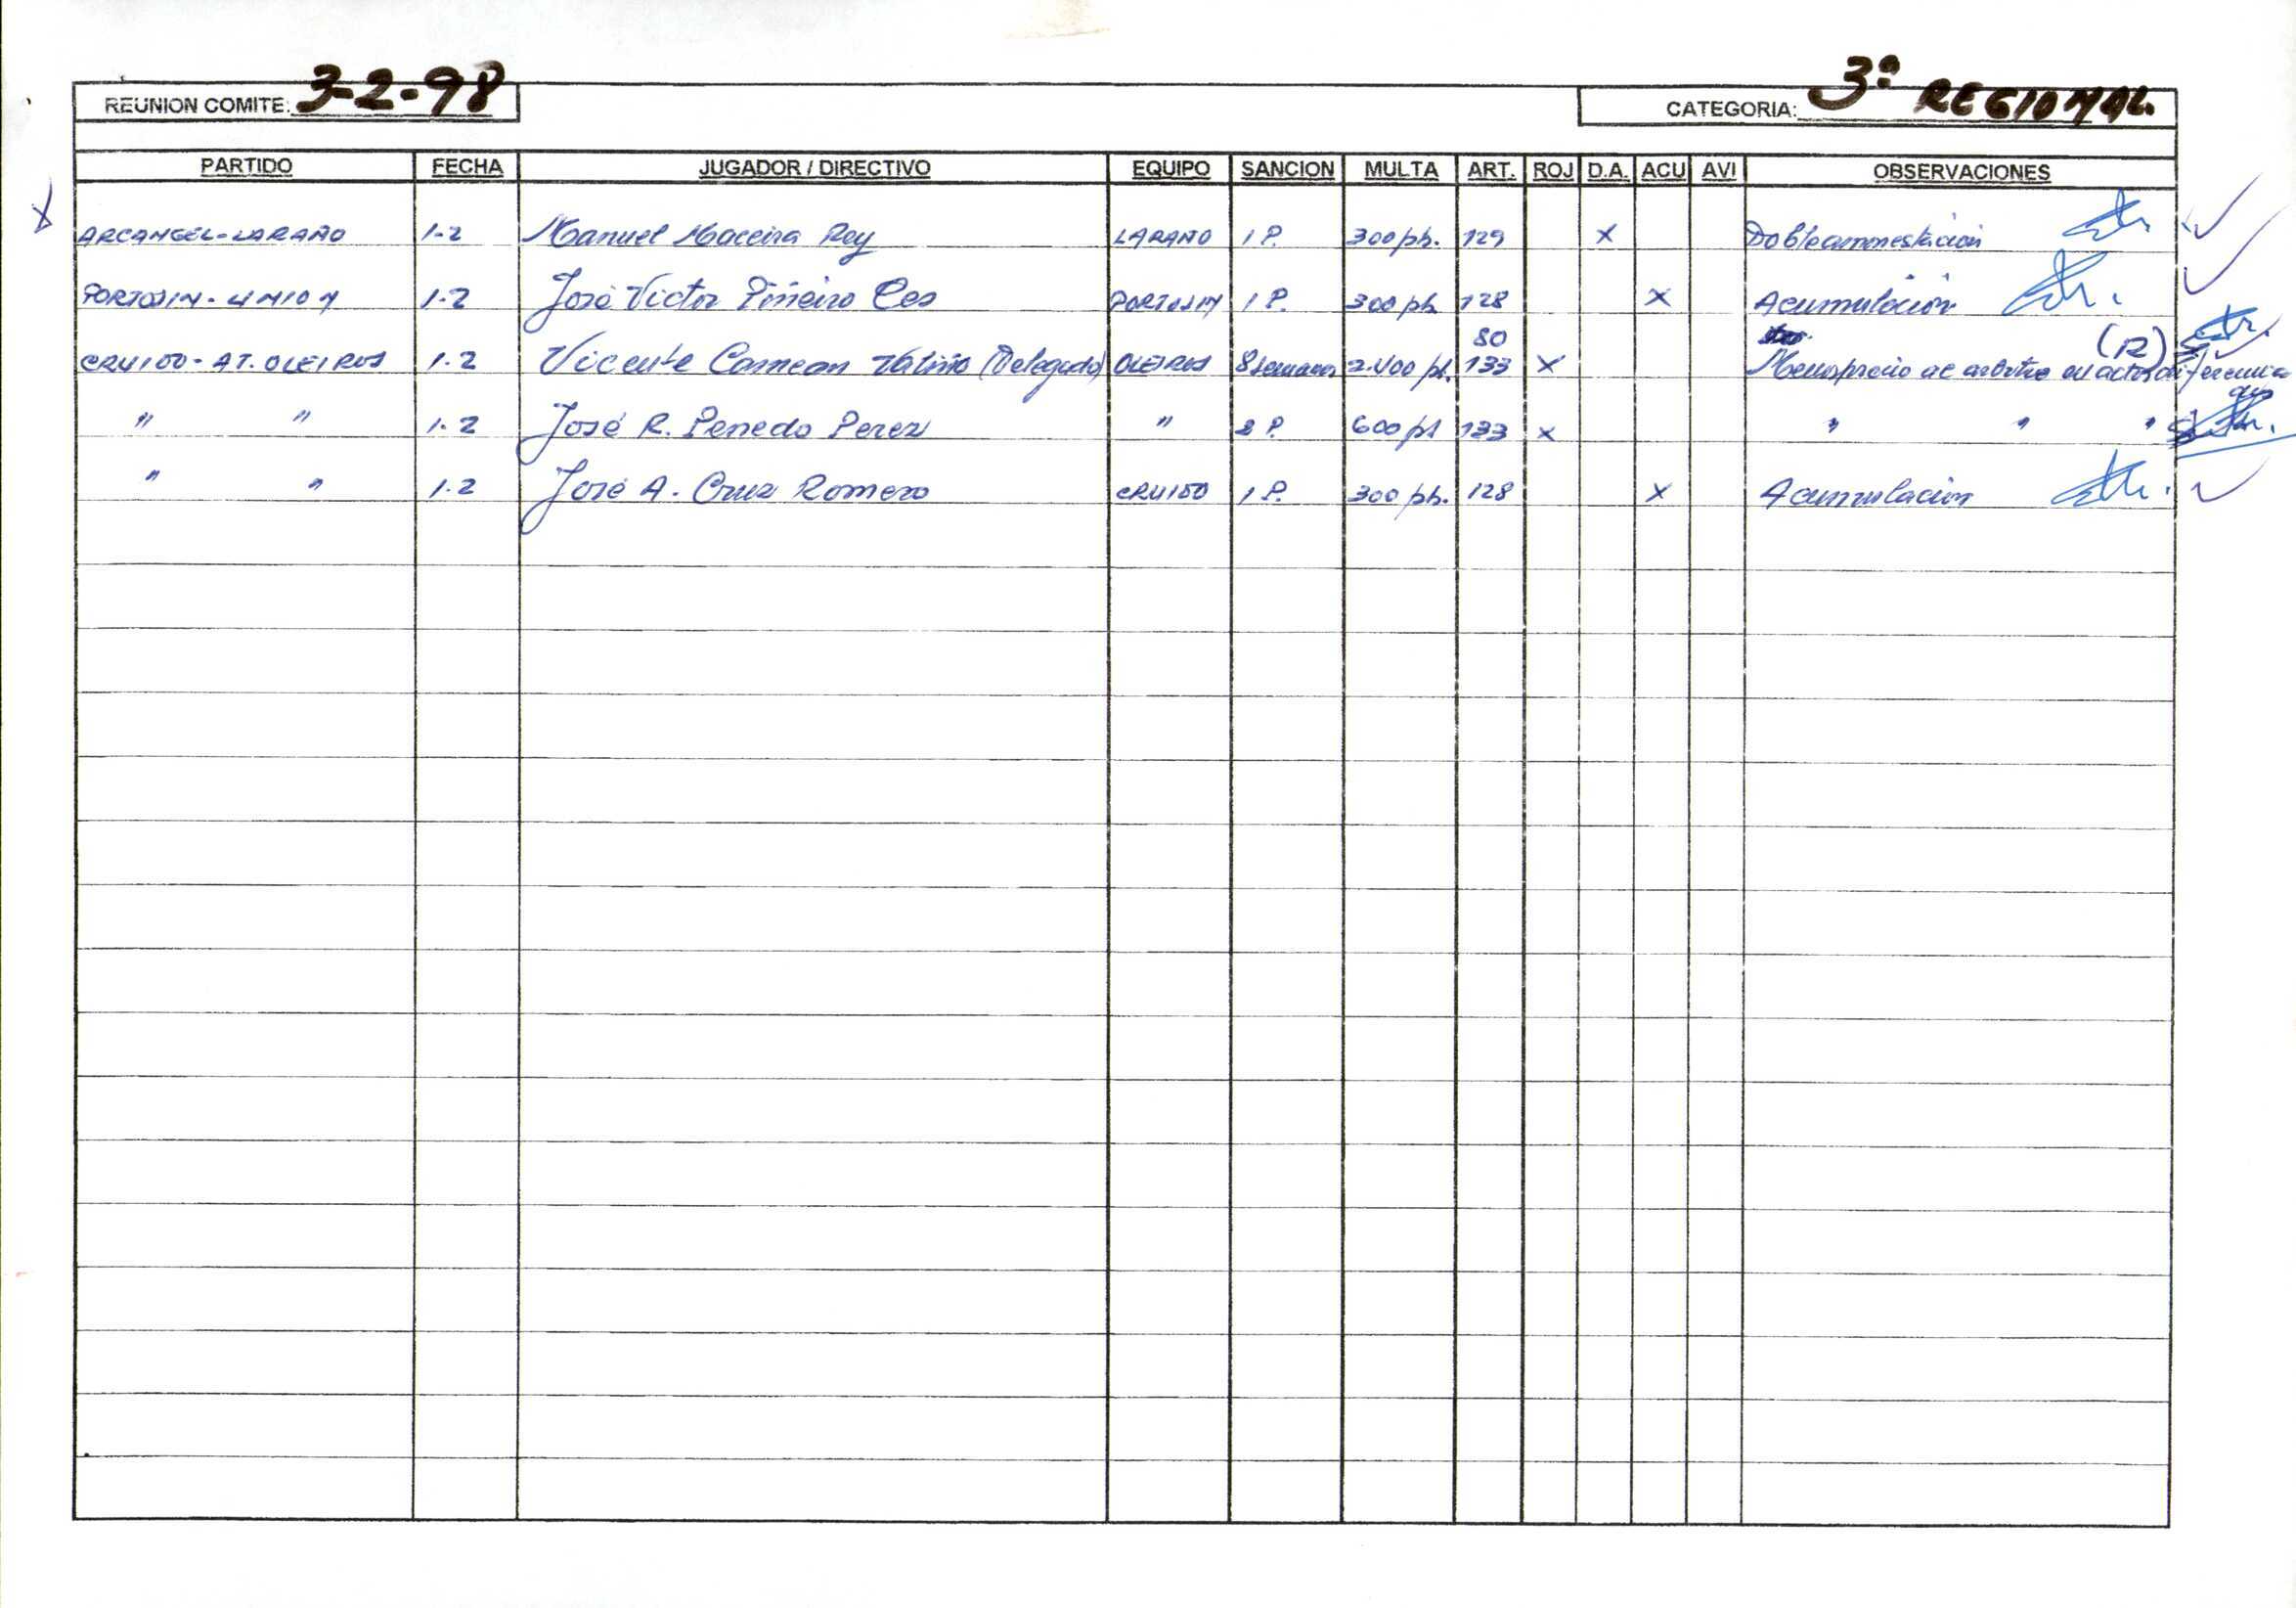 REUNION COMITE: 3-2-98 CATEGORIA: 3ª REGIONAL.
PARTIDO FECHA JUGADOR / DIRECTIVO EQUIPO SANCION MULTA ART. ROJ D.A. ACU AVI OBSERVACIONES
ARCANGEL-LARAÑO 1-2 Manuel Maceira Rey LARAÑO 1 P. 300 pts. 129 x Dobleamonestación
PORTOSIN - UNION 1-2 José Victor Piñeiro Ces PORTOSIN 1 P. 300 pts 128 x Acumulación
80 (R)
CRUIDO - AT. OLEIROS 1.2 Vicente (Delegado) OLEIROS 8 semanas 2.400 pts. 133 x Menosprecio
" " 1.2 José R. Penedo Perez " 2 P. 600 pts 133 x " " "
" " 1.2 José A. Cruz Romero CRUIDO 1 P. 300 pts. 128 x Acumulación